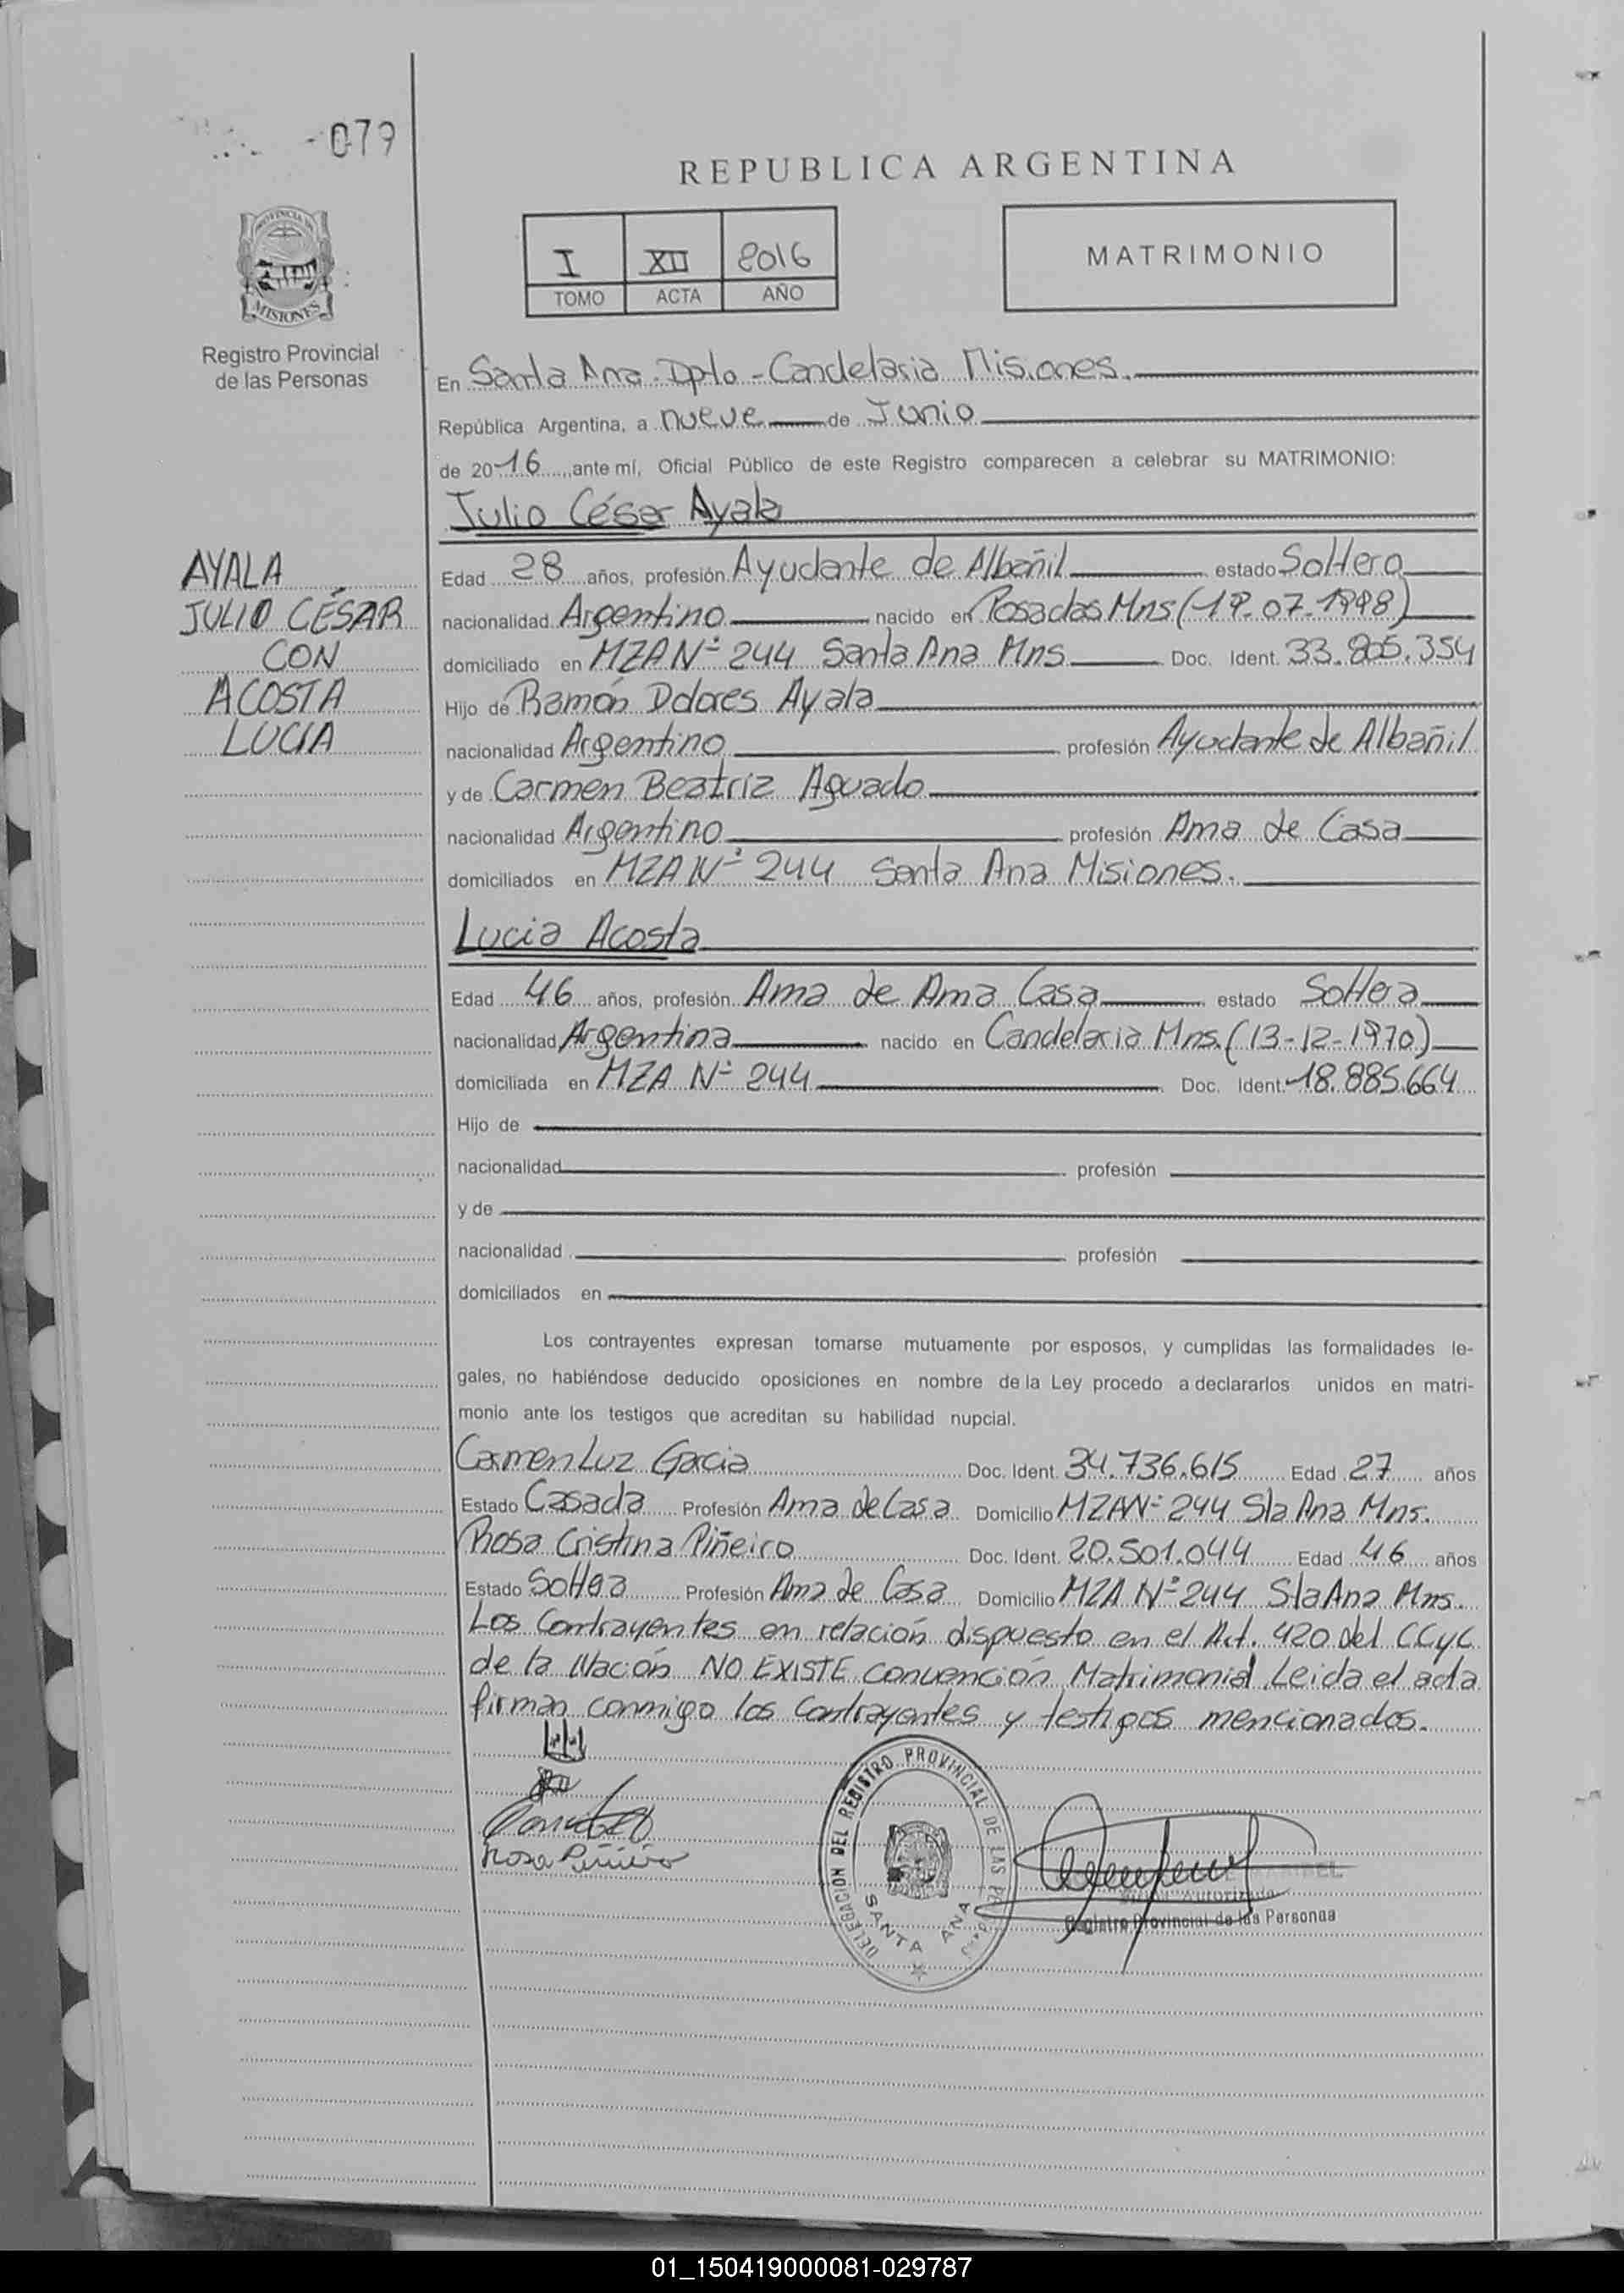 -079
REPUBLICA ARGENTINA
I XII 2016
TOMO ACTA AÑO
MATRIMONIO
MISIONES
Registro Provincial
de las Personas
En Santa Ana. Dpto - Candelaria Misiones.
República Argentina, a nueve de Junio
de 2016 ante mí, Oficial Público de este Registro comparecen a celebrar su MATRIMONIO:
Julio César Ayala
AYALA
JULIO CÉSAR
CON
ACOSTA
LUCIA
Edad 28 años, profesión Ayudante de Albañil estado Soltero
nacionalidad Argentino nacido en Posadas Mns (19-07-1998)
domiciliado en MZA Nº 244 Santa Ana Mns Doc. Ident. 33.805.354
Hijo de Ramón Dolores Ayala
nacionalidad Argentino profesión Ayudante de Albañil
y de Carmen Beatriz Aguado
nacionalidad Argentino profesión Ama de Casa
domiciliados en MZA Nº 244 Santa Ana Misiones.
Lucia Acosta
Edad 46 años, profesión Ama de Ama Casa estado Soltera
nacionalidad Argentina nacido en Candelaria Mns. (13-12-1970)
domiciliada en MZA Nº 244 Doc. Ident. 18.885.664
Hijo de
nacionalidad profesión
y de
nacionalidad profesión
domiciliados en
Los contrayentes expresan tomarse mutuamente por esposos, y cumplidas las formalidades le-
gales, no habiéndose deducido oposiciones en nombre de la Ley procedo a declararlos unidos en matri-
monio ante los testigos que acreditan su habilidad nupcial.
Carmen Luz Garcia Doc. Ident. 34.736.615 Edad 27 años
Estado Casada Profesión Ama de Casa Domicilio MZA Nº 244 Sta Ana Mns.
Rosa Cristina Piñeiro Doc. Ident. 20.501.044 Edad 46 años
Estado Soltera Profesión Ama de Casa Domicilio MZA Nº 244 Sta Ana Mns.
Los Contrayentes en relación dispuesto en el Art. 420 del CCyC
de la Nación NO EXISTE Convención Matrimonial. Leida el acta
firman conmigo los Contrayentes y testigos mencionados.
Rosa Piñeiro
DELEGACION DEL REGISTRO PROVINCIAL DE LAS
SANTA ANA
Autorizada
Registro Provincial de las Personas
01_150419000081-029787